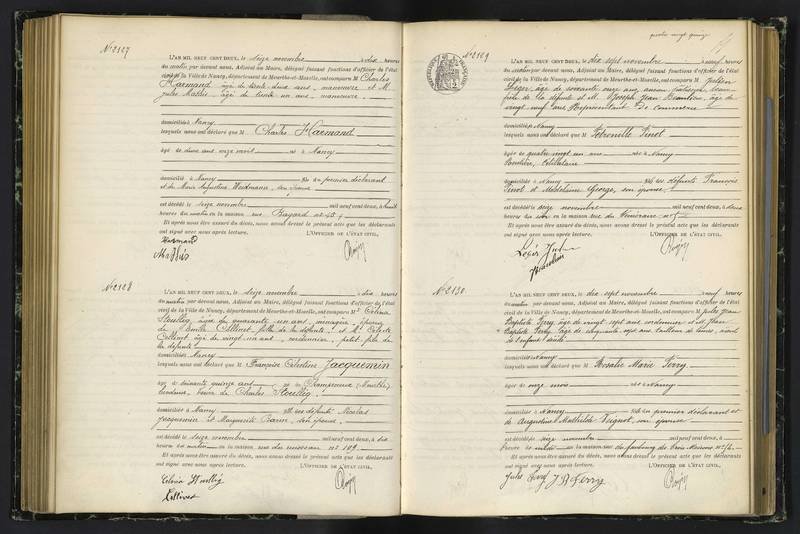 N° 2127
L'AN MIL NEUF CENT DEUX, le seize novembre à dix heures
du matin par devant nous, Adjoint au Maire, délégué faisant fonctions d'officier de l'état
civil de la Ville de Nancy, département de Meurthe-et-Moselle, ont comparu M Charles
Harmand âgé de trente deux ans, manœuvre et M
Jules Mathis âgé de trente un ans, manœuvre
domiciliés à Nancy
lesquels nous ont déclaré que M Charles Harmand
âgé de deux ans onze mois né à Nancy
domicilié à Nancy fils du premier déclarant
et de Marie Augustine son épouse
est décédé le seize novembre mil neuf cent deux, à huit
heures du matin en la maison rue Bayard n° 45
Et après nous être assuré du décès, nous avons dressé le présent acte que les déclarants
ont signé avec nous après lecture. L'OFFICIER DE L'ÉTAT CIVIL,
Harmand
Mathis
N° 2128
L'AN MIL NEUF CENT DEUX, le seize novembre à dix heures
du matin par devant nous, Adjoint au Maire, délégué faisant fonctions d'officier de l'état
civil de la Ville de Nancy, département de Meurthe-et-Moselle, ont comparu M Célina
âgée de quarante un ans, ménagère, épouse
de Emile fille de la défunte et M
âgé de vingt un ans, cordonnier, petit fils de
la défunte
domiciliés à Nancy
lesquels nous ont déclaré que Françoise Célestine Jacquemin
âgée de soixante quinze ans née à Champenoux (Meurthe)
veuve de Charles
domiciliée à Nancy fille des défunts Nicolas
Jacquemin et Marguerite son épouse
est décédé le seize novembre mil neuf cent deux, à dix
heures du matin en la maison rue du ruisseau n° 109
Et après nous être assuré du décès, nous avons dressé le présent acte que les déclarants
ont signé avec nous après lecture. L'OFFICIER DE L'ÉTAT CIVIL,
Célina
quatre vingt quinze
N° 2129
L'AN MIL NEUF CENT DEUX, le dix sept novembre à neuf heures
du matin par devant nous, Adjoint au Maire, délégué faisant fonctions d'officier de l'état
civil de la Ville de Nancy, département de Meurthe-et-Moselle, ont comparu M Julien
Léger âgé de soixante onze ans, ancien
frère de la défunte et M Joseph Jean âgé de
vingt neuf ans Représentant de commerce
domiciliés à Nancy
lesquels nous ont déclaré que M Pétronille
âgée de quatre vingt un ans née à Nancy
Rentière, Célibataire
domiciliée à Nancy fille des défunts François
et Madeleine George, son épouse
est décédé le seize novembre mil neuf cent deux, à deux
heures du soir en la maison rue du n° 5
Et après nous être assuré du décès, nous avons dressé le présent acte que les déclarants
ont signé avec nous après lecture. L'OFFICIER DE L'ÉTAT CIVIL,
Léger
N° 2130
L'AN MIL NEUF CENT DEUX, le dix sept novembre à neuf heures
du matin par devant nous, Adjoint au Maire, délégué faisant fonctions d'officier de l'état
civil de la Ville de Nancy, département de Meurthe-et-Moselle, ont comparu M Jules Jean
Baptiste Ferry âgé de vingt sept ans, cordonnier et M Jean
Baptiste Ferry âgé de cinquante sept ans, tailleur de limes, aïeul
de l'enfant décédé
domiciliés à Nancy
lesquels nous ont déclaré que M Rosalie Marie Ferry
âgée de onze mois née à Nancy
domiciliée à Nancy fille du premier déclarant et
de Augustine Mathilde son épouse
est décédé le seize novembre mil neuf cent deux, à
heures de en la maison rue du faubourg des Trois Maisons n°
Et après nous être assuré du décès, nous avons dressé le présent acte que les déclarants
ont signé avec nous après lecture. L'OFFICIER DE L'ÉTAT CIVIL,
Jules Ferry J B Ferry